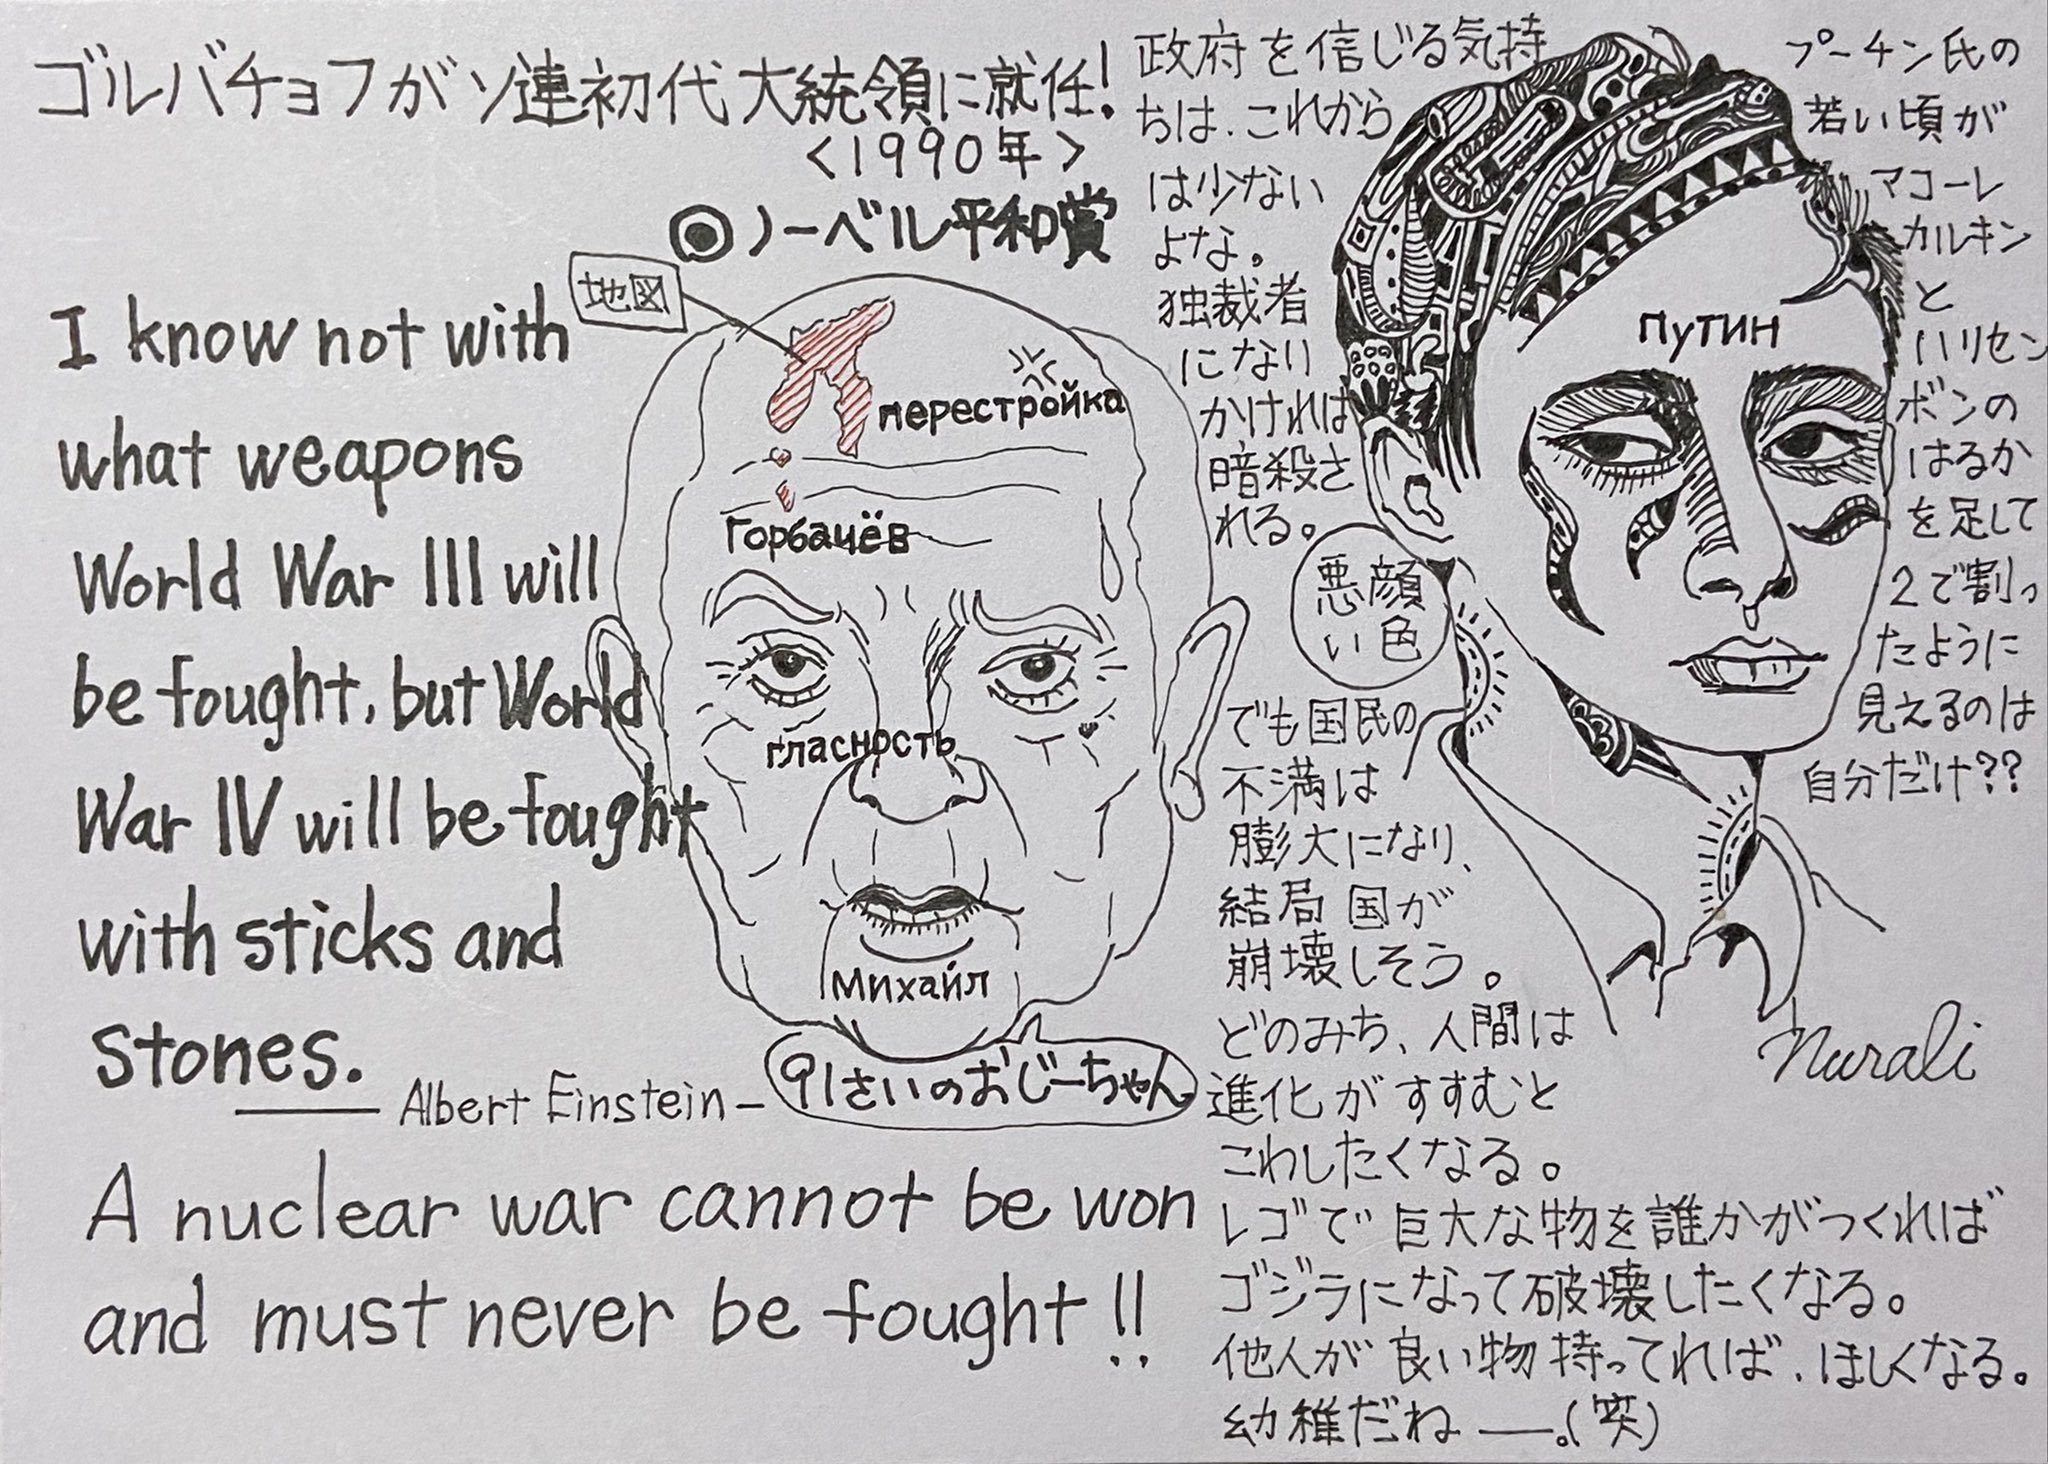 ゴルバチョフがソ連初代大統領に就任!
<1990年>
◎ノーベル平和賞
地図
I know not with
what weapons
World War III will
be fought, but World
War IV will be fought
with sticks and
stones.
— Albert Einstein —
A nuclear war cannot be won
and must never be fought!!
перестройка
Горбачёв
гласность
Михайл
91さいのおじーちゃん
政府を信じる気持
ちは、これから
は少ない
よな。
独裁者
にない
かければ
暗殺さ
れる。
顔色
悪い
でも国民の
不満は
膨大になり、
結局国が
崩壊しそう。
どのみち、人間は
進化がすすむと
こわしたくなる。
レゴで巨大な物を誰かがつくれば
ゴジラになって破壊したくなる。
他人が良い物持ってれば、ほしくなる。
幼稚だね——。(笑)
プーチン氏の
若い頃が
マコーレ
カルキン
と
ハリセン
ボンの
はるか
を足して
2で割っ
たように
見えるのは
自分だけ??
Путин
Nurali